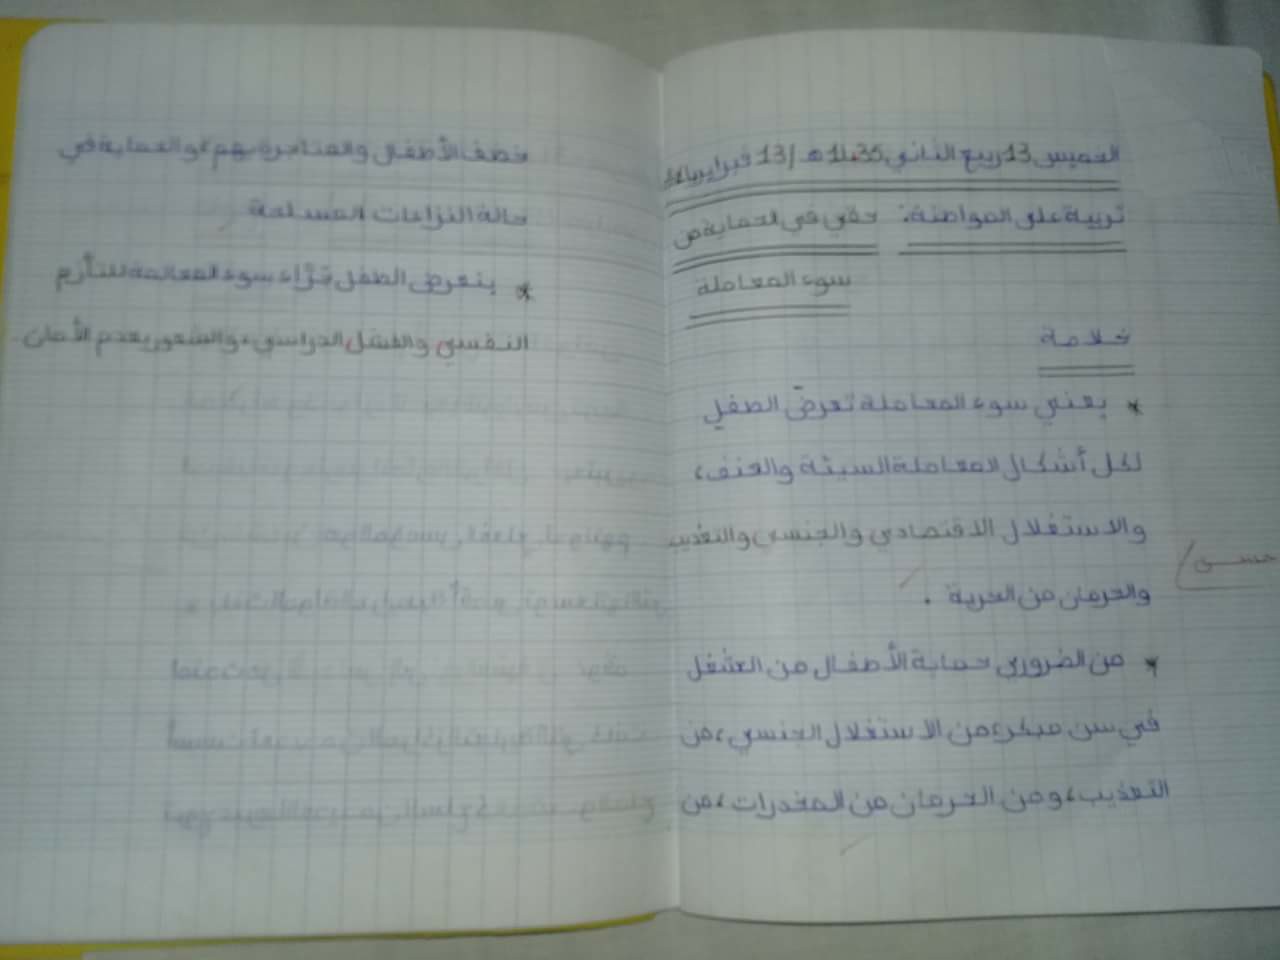 الخميس 13 ربيع الثاني 1435هـ / 13 فبراير 2014
تربية على المواطنة: حقي في الحماية من
سوء المعاملة
خلاصة
* يعني سوء المعاملة تعرض الطفل
لكل أشكال المعاملة السيئة والعنف،
والاستغلال الاقتصادي والجنسي والتعذيب
والحرمان من الحرية.
* من الضروري حماية الأطفال من الشغل
في سن مبكر، من الاستغلال الجنسي، من
التعذيب، ومن الحرمان من المخدرات، من
خطف الأطفال والمتاجرة بهم، والحماية في
حالة النزاعات المسلحة
* يتعرض الطفل جرّاء سوء المعاملة للتأزم
النفسي والفشل الدراسي، والشعور بعدم الأمان